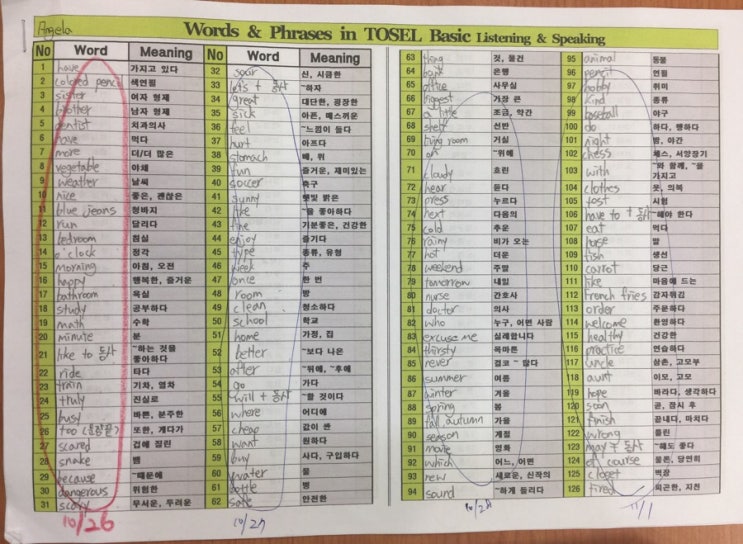 Angela
Words & Phrases in TOSEL Basic Listening & Speaking
No Word Meaning
1 have 가지고 있다
2 colored pencil 색연필
3 sister 여자 형제
4 brother 남자 형제
5 dentist 치과의사
6 have 먹다
7 more 더/더 많은
8 vegetable 야채
9 weather 날씨
10 nice 좋은, 괜찮은
11 blue jeans 청바지
12 run 달리다
13 bedroom 침실
14 o'clock 정각
15 morning 아침, 오전
16 happy 행복한, 즐거운
17 bathroom 욕실
18 study 공부하다
19 math 수학
20 minute 분
21 like to 동사 ~하는 것을 좋아하다
22 ride 타다
23 train 기차, 열차
24 truly 진실로
25 busy 바쁜, 분주한
26 too (문장끝) 또한, 게다가
27 scared 겁에 질린
28 snake 뱀
29 because ~때문에
30 dangerous 위험한
31 scary 무서운, 두려운
10/26
No Word Meaning
32 sour 신, 시큼한
33 let's + 동사 ~하자
34 great 대단한, 굉장한
35 sick 아픈, 메스꺼운
36 feel ~느낌이 들다
37 hurt 아프다
38 stomach 배, 위
39 fun 즐거운, 재미있는
40 soccer 축구
41 sunny 햇빛 밝은
42 like ~을 좋아하다
43 fine 기분좋은, 건강한
44 enjoy 즐기다
45 type 종류, 유형
46 week 주
47 once 한 번
48 room 방
49 clean 청소하다
50 school 학교
51 home 가정, 집
52 better ~보다 나은
53 after ~뒤에, ~후에
54 go 가다
55 will + 동사 ~할 것이다
56 where 어디에
57 cheap 값이 싼
58 want 원하다
59 buy 사다, 구입하다
60 water 물
61 bottle 병
62 safe 안전한
10/27
63 thing 것, 물건
64 bank 은행
65 office 사무실
66 biggest 가장 큰
67 a little 조금, 약간
68 shelf 선반
69 living room 거실
70 on ~위에
71 cloudy 흐린
72 hear 듣다
73 press 누르다
74 next 다음의
75 cold 추운
76 rainy 비가 오는
77 hot 더운
78 weekend 주말
79 tomorrow 내일
80 nurse 간호사
81 doctor 의사
82 who 누구, 어떤 사람
83 excuse me 실례합니다
84 thirsty 목마른
85 never 결코 ~ 않다
86 summer 여름
87 winter 겨울
88 spring 봄
89 fall, autumn 가을
90 season 계절
91 movie 영화
92 which 어느, 어떤
93 new 새로운, 신작의
94 sound ~하게 들리다
95 animal 동물
96 pencil 연필
97 hobby 취미
98 kind 종류
99 baseball 야구
100 do 하다, 행하다
101 night 밤, 야간
102 chess 체스, 서양장기
103 with ~와 함께, ~을 가지고
104 clothes 옷, 의복
105 test 시험
106 have to + 동사 ~해야 한다
107 eat 먹다
108 horse 말
109 fish 생선
110 carrot 당근
111 like 마음에 드는
112 french fries 감자튀김
113 order 주문하다
114 welcome 환영하다
115 healthy 건강한
116 practice 연습하다
117 uncle 삼촌, 고모부
118 aunt 이모, 고모
119 hope 바라다, 생각하다
120 soon 곧, 잠시 후
121 finish 끝내다, 마치다
122 wrong 틀린
123 may + 동사 ~해도 좋다
124 of course 물론, 당연히
125 closet 벽장
126 tired 피곤한, 지친
11/1